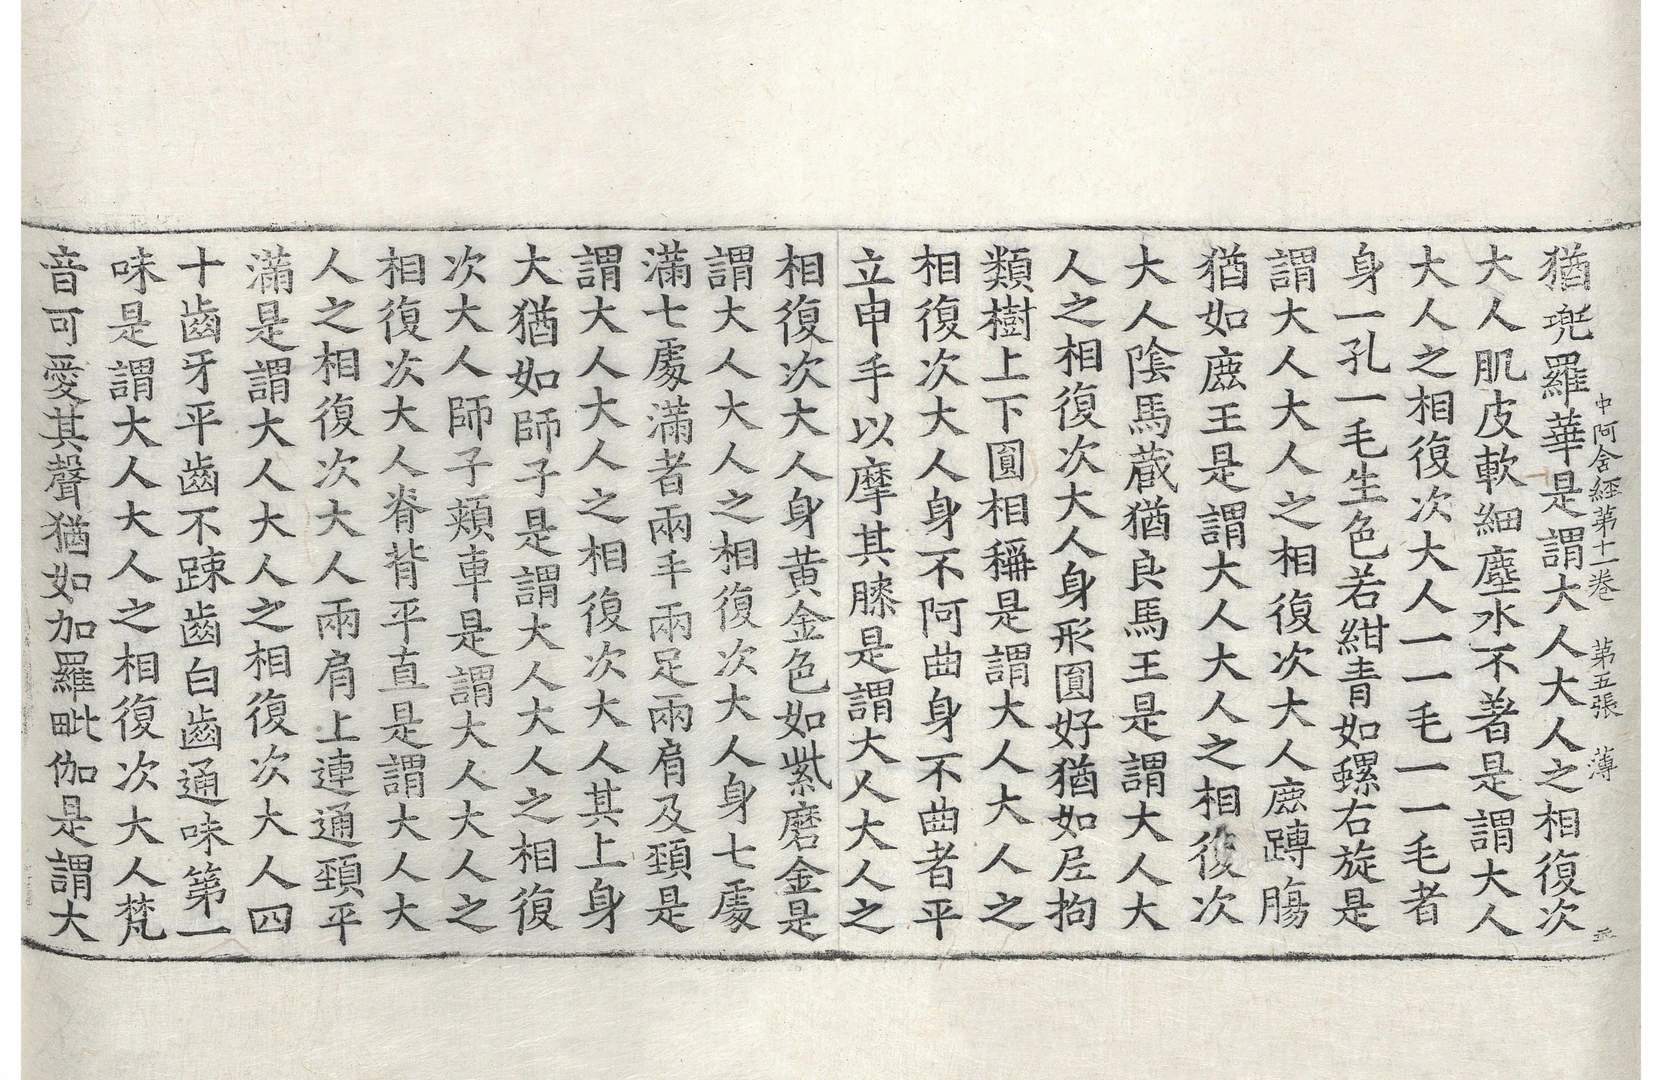 中阿含經第十一卷　第五張　薄
猶兜羅華是謂大人大人之相復次
大人肌皮軟細塵水不著是謂大人
大人之相復次大人一一毛一一毛者
身一孔一毛生色若紺青如螺右旋是
謂大人大人之相復次大人鹿蹲腸
猶如鹿王是謂大人大人之相復次
大人陰馬藏猶良馬王是謂大人大
人之相復次大人身形圓好猶如尼拘
類樹上下圓相稱是謂大人大人之
相復次大人身不阿曲身不曲者平
立申手以摩其膝是謂大人大人之
相復次大人身黃金色如紫磨金是
謂大人大人之相復次大人身七處
滿七處滿者兩手兩足兩肩及頸是
謂大人大人之相復次大人其上身
大猶如師子是謂大人大人之相復
次大人師子頰車是謂大人大人之
相復次大人脊背平直是謂大人大
人之相復次大人兩肩上連通頸平
滿是謂大人大人之相復次大人四
十齒牙平齒不踈齒白齒通味第一
味是謂大人大人之相復次大人梵
音可愛其聲猶如加羅毗伽是謂大